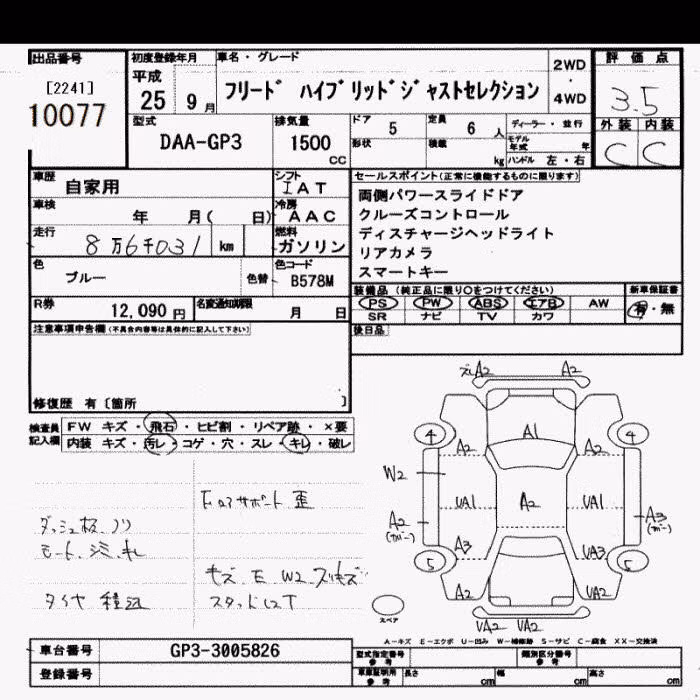 出品番号
[2241]
10077
初度登録年月
平成
25 9月
車名・グレード
フリード ハイブリッドジャストセレクション
2WD
・
4WD
評価点
3.5
外装 内装
C C
型式
DAA-GP3
排気量
1500
CC
ドア 5
定員 6 人
形状
積載 kg
ディーラー・並行
モデル年式 年
ハンドル 左・右
車歴
自家用
シフト
I AT
車検
年 月( 日)
冷房
A AC
走行
8万6千031 km
燃料
ガソリン
色
ブルー
色替
色コード
B578M
R券
12,090 円
名変通知期限
月 日
セールスポイント(正常に機能するものに限ります)
両側パワースライドドア
クルーズコントロール
ディスチャージヘッドライト
リアカメラ
スマートキー
装備品 (純正品に限り○をつけてください)
PS PW ABS エアB AW
SR ナビ TV カワ
新車保証書
有・無
後日品
注意事項申告欄(不具合内容等は具体的に記入して下さい)
修復歴 有〔箇所 〕
検査員
記入欄
FW キズ・飛石・ヒビ割・リペア跡・×要
内装 キズ・汚レ・コゲ・穴・スレ・キレ・破レ
ダッシュ板 ノリ
タイヤ 積込
サポート 歪
キズ E W2
A2
A2
4
4
A2
A1
A2
W2
UA1
A2
UA1
A2
A3
A3
UA3
5
5
A2
UA2
UA2 UA2
スペア
A-キズ E-エクボ U-凹み W-補修跡 S-サビ C-腐食 XX-交換済
車台番号
GP3-3005826
登録番号
型式指定番号
参考
類別区分番号
参考
車庫証明用
参考
長さ cm
幅 cm
高さ cm